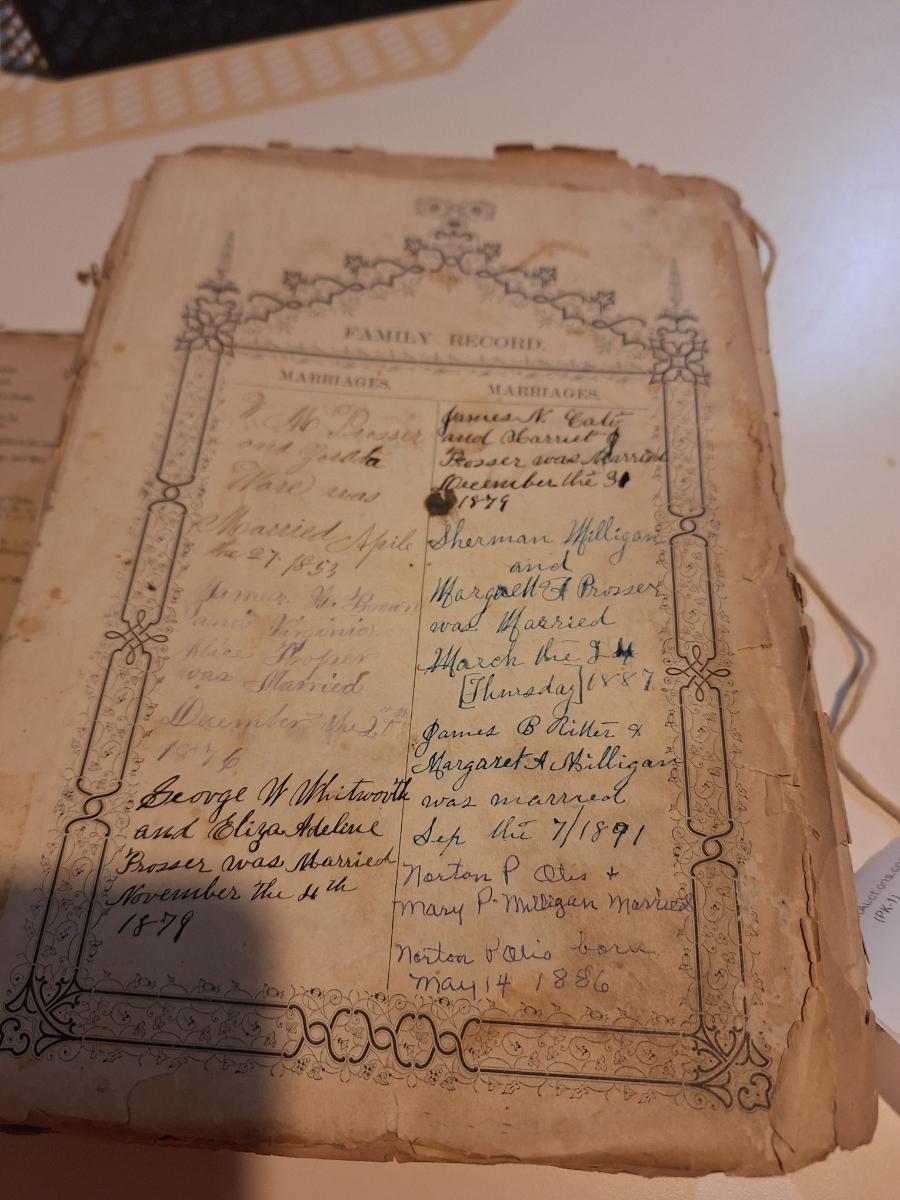 FAMILY RECORD.
MARRIAGES.
W M Prosser
and
Ware was
Married Aprile
the 27. 1853
James. W. Brown
and Virginia
Alice Prosser
was Married
December the 2
1876
George W Whitworth
and Eliza Adeline
Prosser was Married
November the 4th
1879
MARRIAGES.
James N. Cato
and Harriet J
Prosser was Married
December the 31
1879
Sherman Milligan
and
Margarett A Prosser
was Married
March the 24
[Thursday] 1887
James B Ritter &
Margaret A Milligan
was married
Sep the 7/1891
Norton P Otis +
Mary P. Milligan Married
Norton P Otis born
May 14 1886
(PK-1)